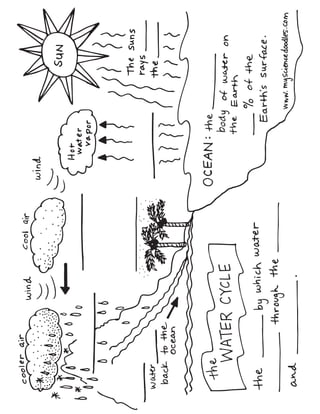 the
WATER CYCLE
the ______ by which water
______ through the ______
and ______.
cooler air
wind
cool air
wind
Hot
water
vapor
SUN
The suns
rays ______
the ______
water ______
back to the
ocean
OCEAN: the ______
body of water on
the Earth
______ % of the
Earth's surface.
www.mysciencedoodles.com